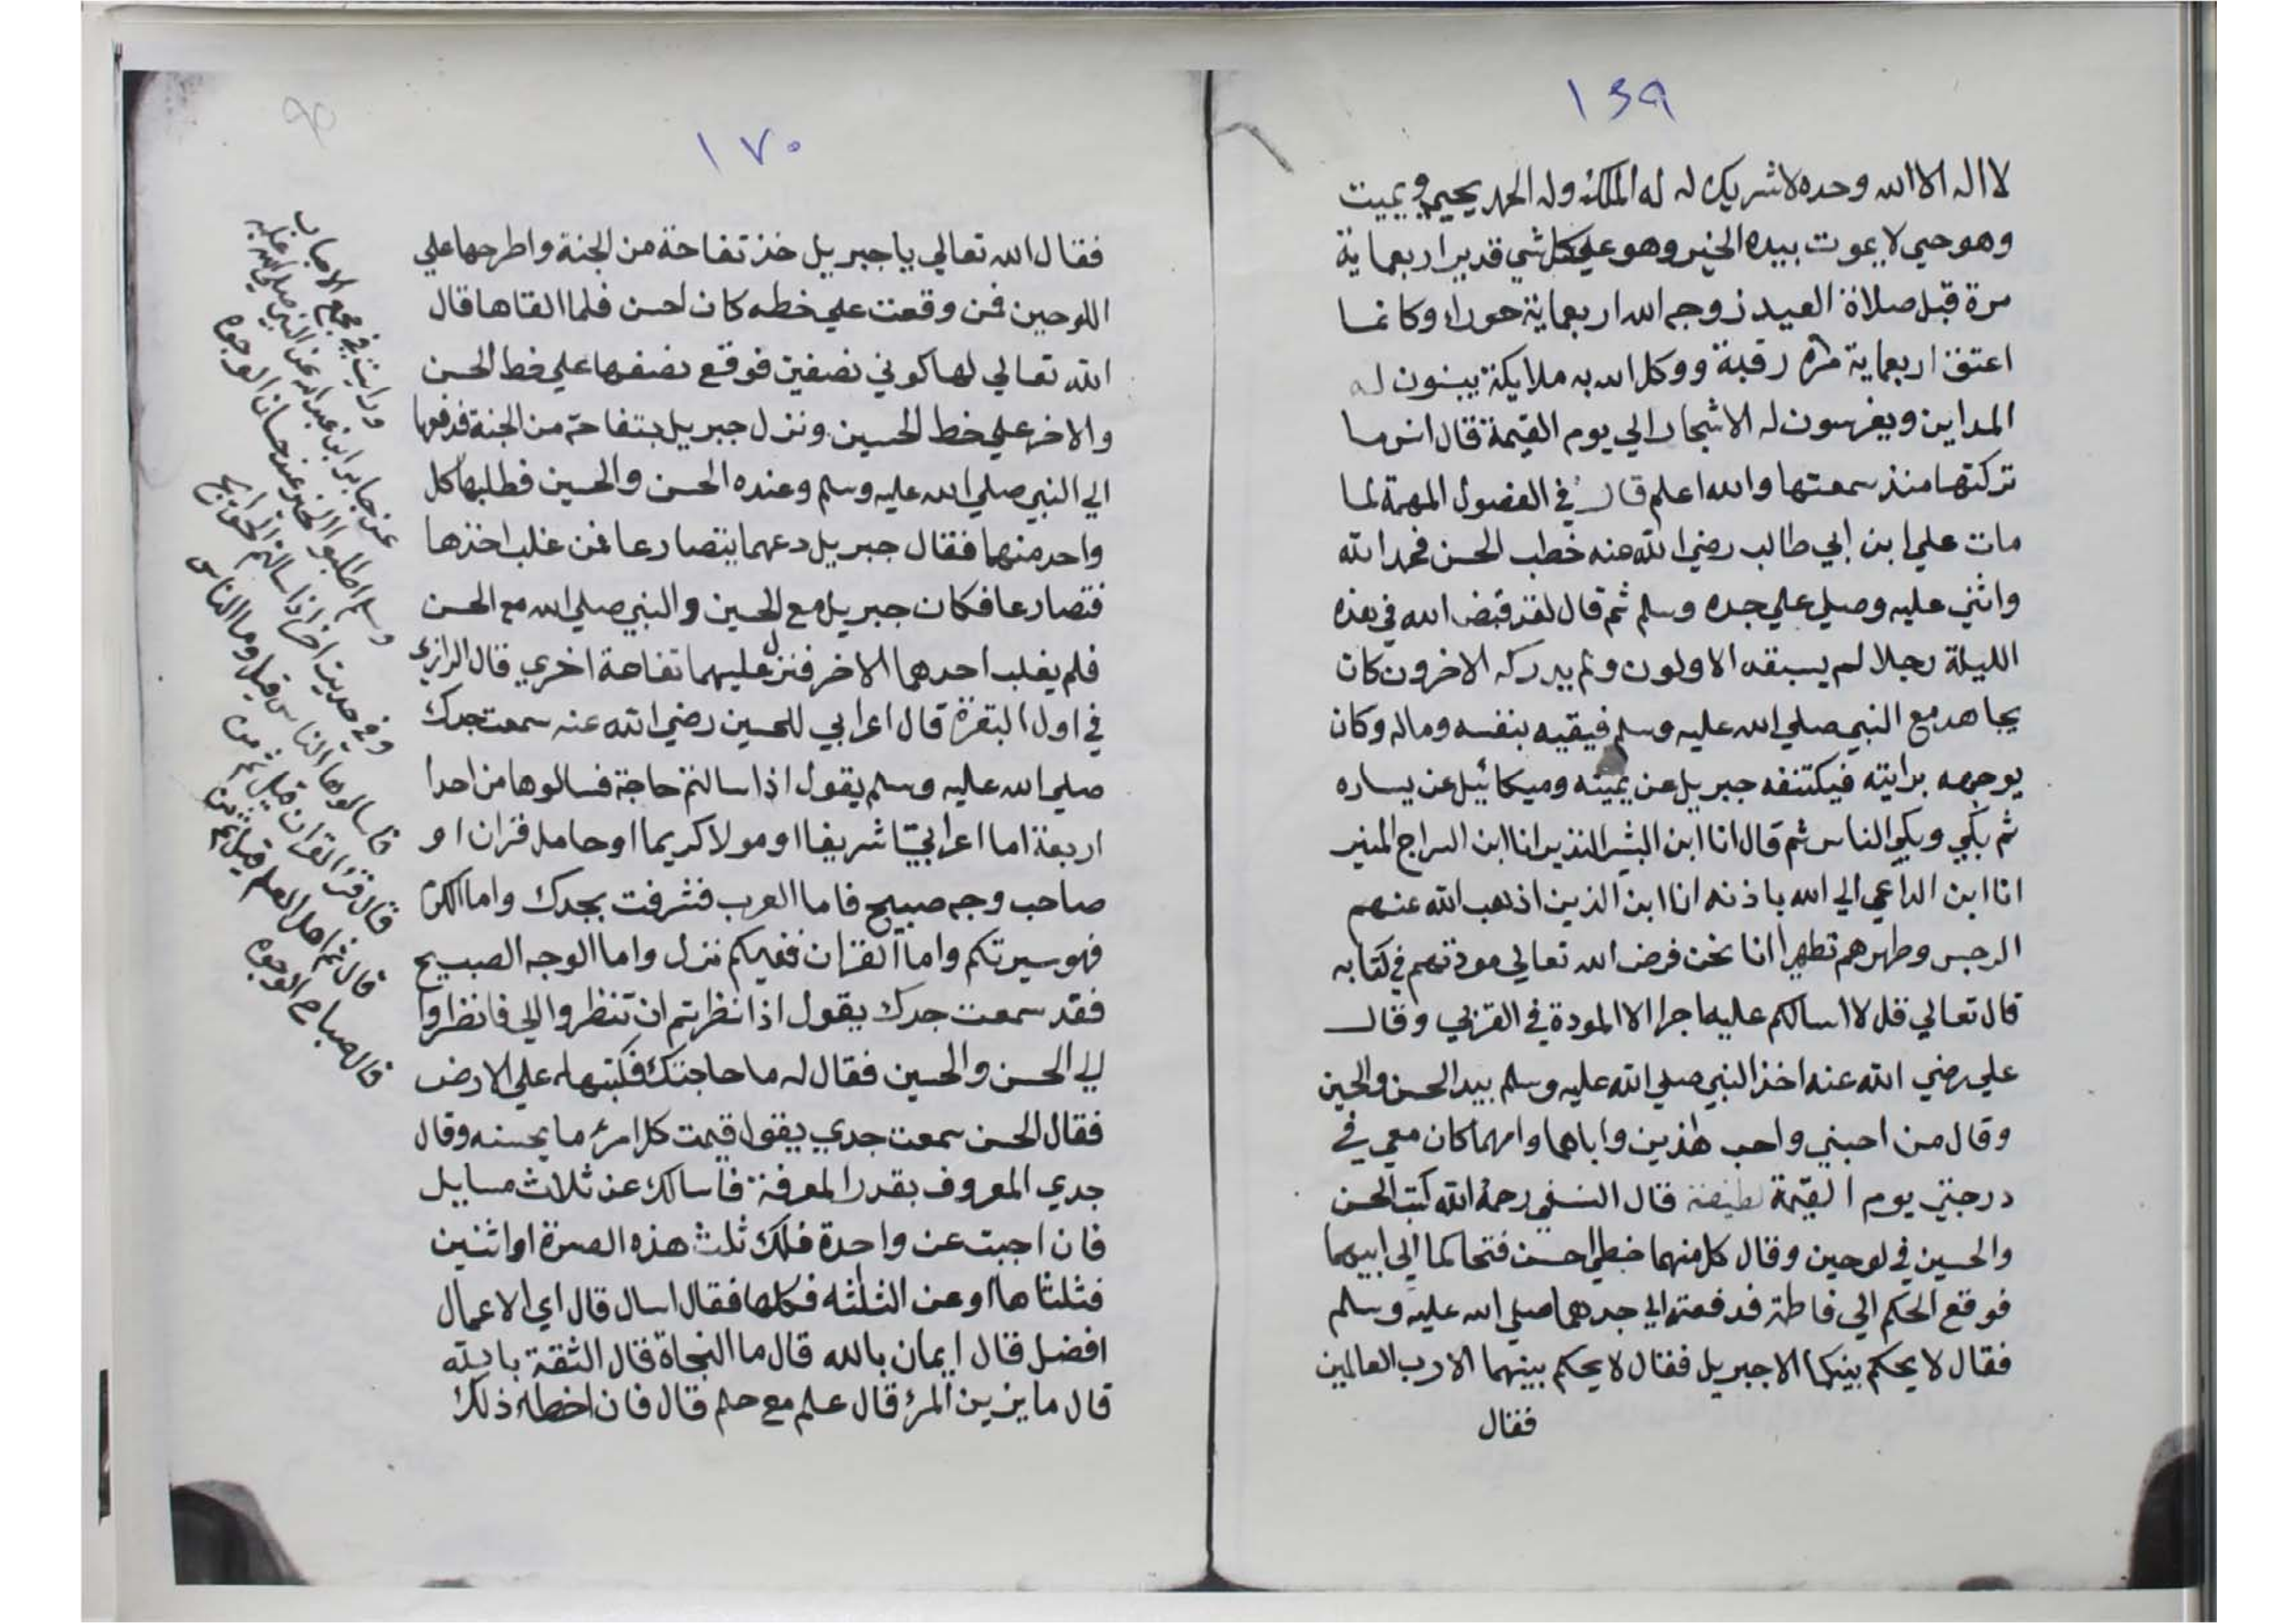 ١٦٩
لا اله الا الله وحده لا شريك له له الملك وله الحمد يحيي ويميت
وهو حي لا يموت بيده الخير وهو علي كل شي قدير اربعماية
مرة قبل صلاة العيد زوجه الله اربعماية حوراء وكانما
اعتق اربعماية رقبة ووكل الله به ملايكة يبنون له
المداين ويغرسون له الاشجار الي يوم القيمة قال انس ما
تركتها منذ سمعتها والله اعلم قال في الفصول المهمة لما
مات علي ابن ابي طالب رضي الله عنه خطب الحسن فحمد الله
واثني عليه وصلي علي جده وسلم ثم قال لقد قبض الله في هذه
الليلة رجلا لم يسبقه الاولون ولم يدركه الاخرون كان
يجاهد مع النبي صلي الله عليه وسلم فيقيه بنفسه وماله وكان
يوجهه برايته فيكتنفه جبريل عن يمينه وميكائيل عن يساره
ثم بكي وبكي الناس ثم قال انا ابن البشير النذير انا ابن السراج المنير
انا ابن الداعي الي الله باذنه انا ابن الذين اذهب الله عنهم
الرجس وطهرهم تطهيرا انا نحن فرض الله تعالي مودتهم في كتابه
قال تعالي قل لا اسالكم عليه اجرا الا المودة في القربي وقال
علي رضي الله عنه اخذ النبي صلي الله عليه وسلم بيد الحسن والحسين
وقال من احبني واحب هذين واباهما وامهما كان معي في
درجتي يوم القيمة لطيفة قال النسفي رحمة الله كتب الحسن
والحسين في لوحين وقال كل منهما خطي احسن فتحاكما الي ابيهما
فوقع الحكم الي فاطمة فدفعته الي جدهما صلي الله عليه وسلم
فقال لا يحكم بينكما الا جبريل فقال لا يحكم بينهما الا رب العالمين
فقال
١٧٠
٩٥
فقال الله تعالي يا جبريل خذ تفاحة من الجنة واطرحها علي
اللوحين فمن وقعت علي خطه كان احسن فلما القاها قال
الله تعالي لها كوني نصفين فوقع نصفها علي خط الحسن
والاخر علي خط الحسين ونزل جبريل بتفاحة من الجنة فدفعها
الي النبي صلي الله عليه وسلم وعنده الحسن والحسين فطلبها كل
واحد منهما فقال جبريل دعهما يتصارعا فمن غلب اخذها
فتصارعا فكان جبريل مع الحسين والنبي صلي الله مع الحسن
فلم يغلب احدهما الاخر فنزل عليهما تفاحة اخري قال الرازي
في اول البقرة قال اعرابي للحسين رضي الله عنه سمعت جدك
صلي الله عليه وسلم يقول اذا سالتم حاجة فسالوها من احدا
اربعة اما اعرابيا شريفا او مولا كريما او حامل قران او
صاحب وجه صبيح فاما العرب فشرفت بجدك واما الكرم
فهو سيرتكم واما القران ففيكم نزل واما الوجه الصبيح
فقد سمعت جدك يقول اذا نظرتم ان تنظروا الي فانظروا
الي الحسن والحسين فقال له ما حاجتك فكتبها علي الارض
فقال الحسن سمعت جدي يقول قيمت كل امرء ما يحسنه وقال
جدي المعروف بقدر المعرفة فاسالك عن ثلاث مسايل
فان اجبت عن واحدة فلك ثلث هذه الصرة او اثنين
فثلثاها او عن الثلثه فكلها فقال اسال قال اي الاعمال
افضل قال ايمان بالله قال ما النجاة قال الثقة بالله
قال ما يزين المرء قال علم مع حلم قال فان اخطاه ذلك
ورايت في مجمع الاحباب
عن جابر ابن عبد الله عن النبي صلي الله عليه
وسلم اطلبوا الخير عند حسان الوجوه
وفي حديث اخر اذا سالتم الحوايج
فاسالوها الناس قيل وما الناس
قال قراء القران قيل ثم من
قال ثم اهل العلم قيل ثم من
قال صباح الوجوه